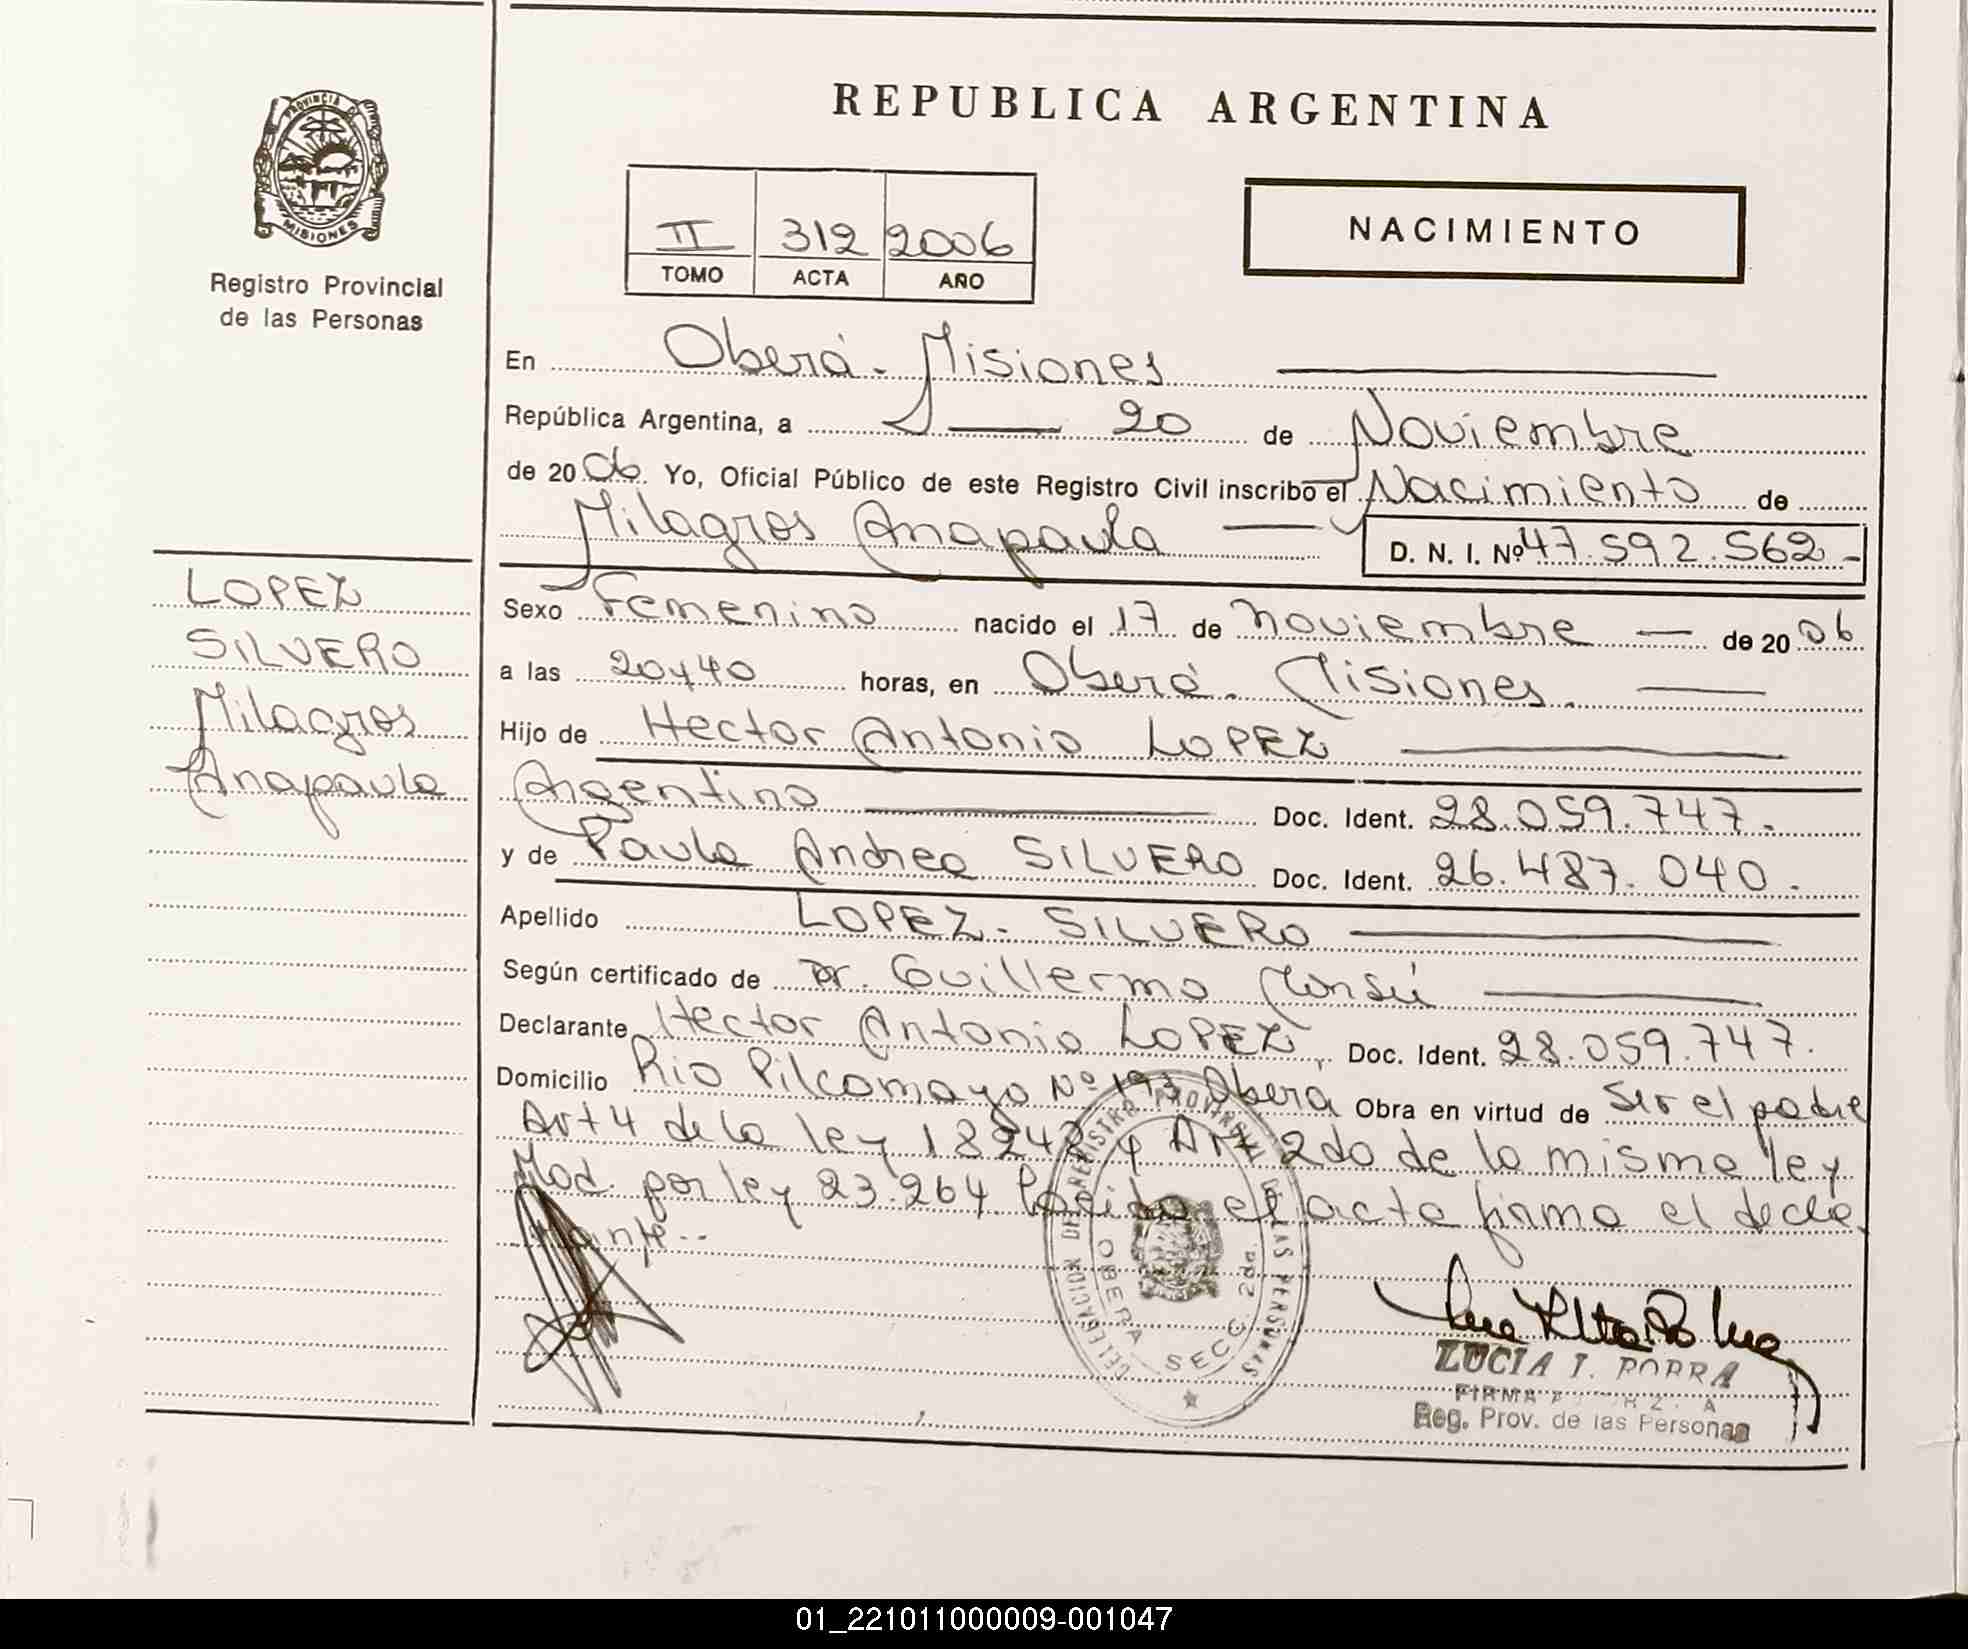 PROVINCIA DE
MISIONES
Registro Provincial
de las Personas
REPUBLICA ARGENTINA
II 312 2006
TOMO ACTA AÑO
NACIMIENTO
En Oberá - Misiones
República Argentina, a 20 de Noviembre
de 2006. Yo, Oficial Público de este Registro Civil inscribo el Nacimiento de
Milagros Anapaula D. N. I. Nº 47.592.562-
LOPEZ
SILVERO
Milagros
Anapaula
Sexo Femenino nacido el 17 de noviembre de 2006
a las 20y40 horas, en Oberá - Misiones.
Hijo de Hector Antonio LOPEZ
Argentino Doc. Ident. 28.059.747.
y de Paula Andrea SILVERO Doc. Ident. 26.487.040.
Apellido LOPEZ - SILVERO
Según certificado de Dr. Guillermo
Declarante Hector Antonio LOPEZ, Doc. Ident. 28.059.747.
Domicilio Rio Pilcomayo Nº 193 Oberá Obra en virtud de ser el padre
Art 4 de la ley 18248 y Art 2do de la misma ley
Mod. por ley 23.264 el acta firma el decla
rante..
DELEGACION DEL REGISTRO PROVINCIAL DE LAS PERSONAS
OBERA SECC. 2da.
LUCIA I. PORRA
FIRMA
Reg. Prov. de las Personas
01_221011000009-001047